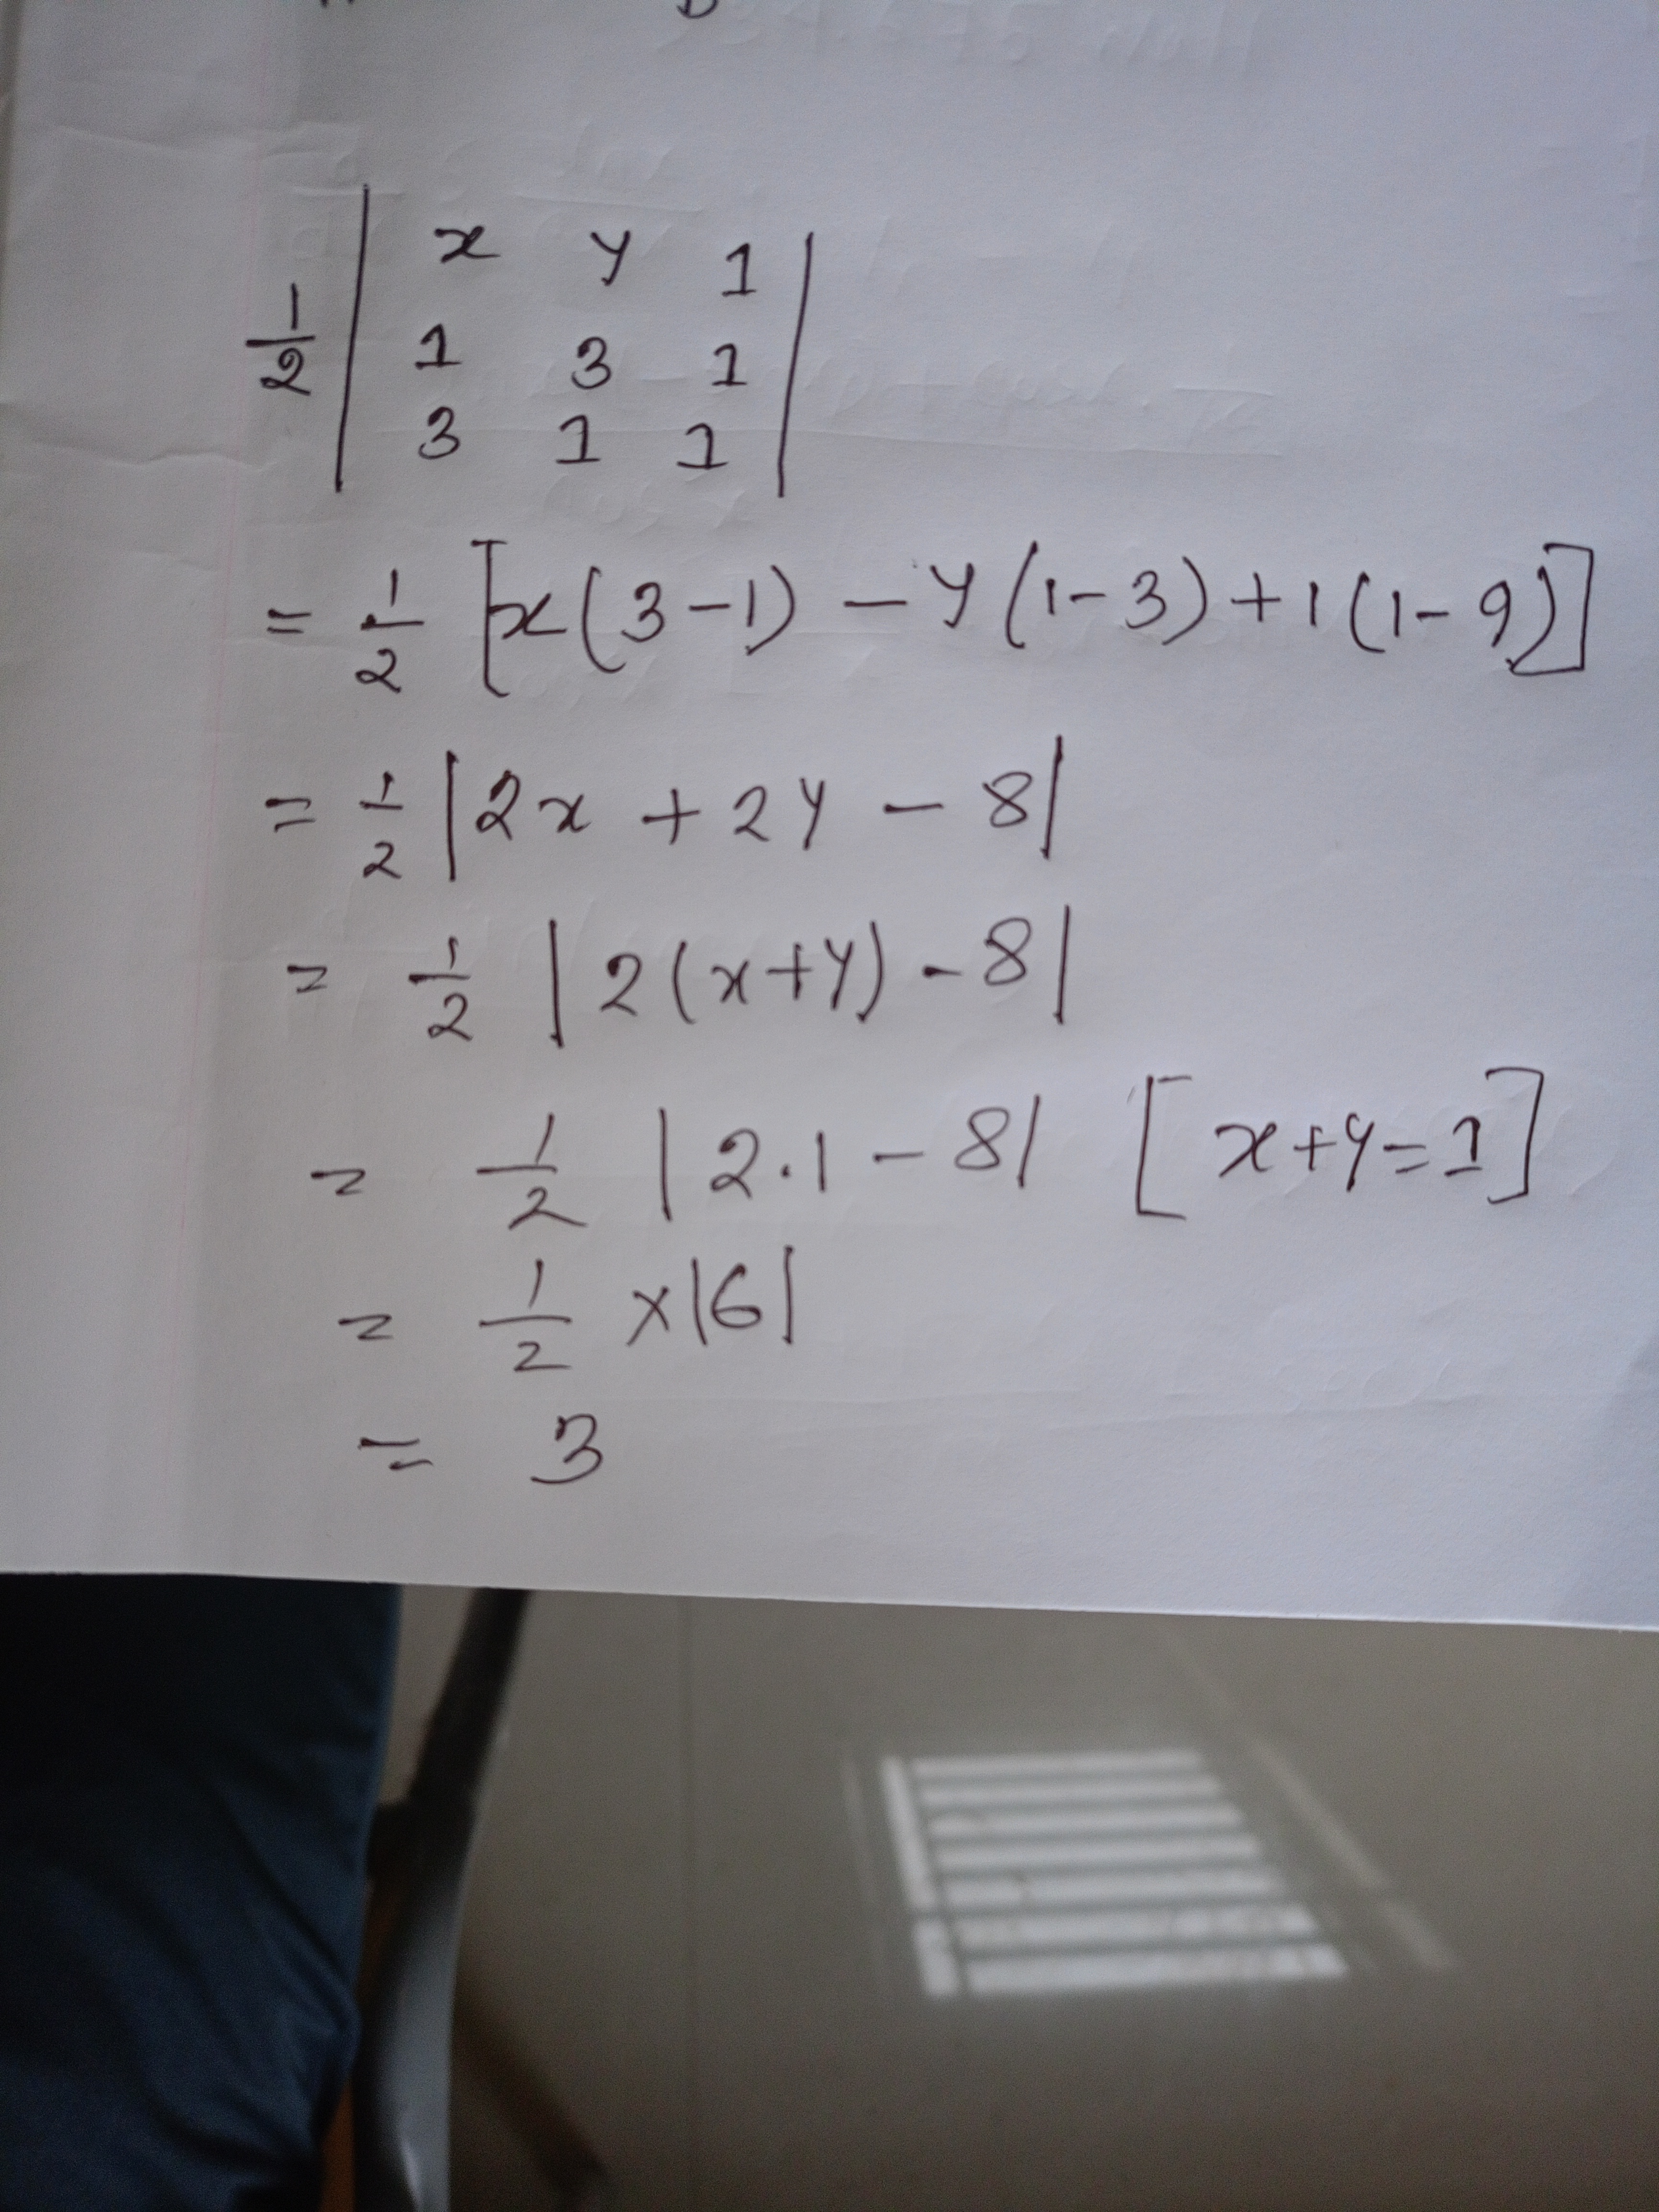 1/2 | x y 1 |
| 1 3 1 |
| 3 1 1 |
= 1/2 [x(3-1) - y(1-3) + 1(1-9)]
= 1/2 |2x + 2y - 8|
= 1/2 |2(x+y) - 8|
= 1/2 |2.1 - 8| [x+y=1]
= 1/2 x|6|
= 3